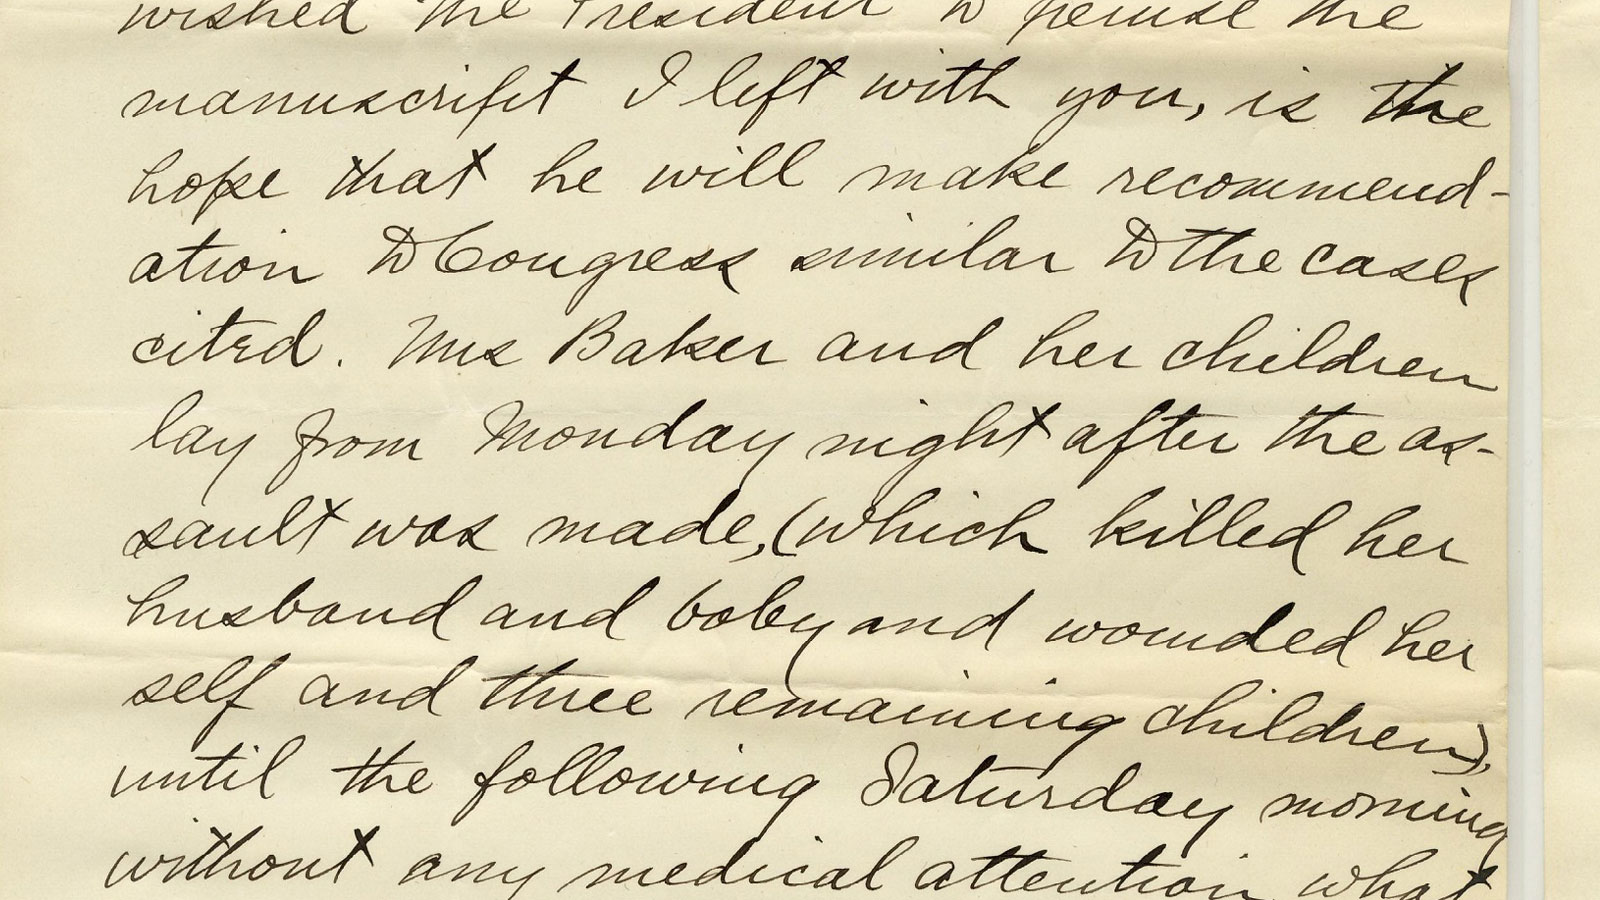 wished the President to peruse the
manuscript I left with you, is the
hope that he will make recommend-
ation to Congress similar to the cases
cited. Mrs Baker and her children
lay from Monday night after the as-
sault was made, (which killed her
husband and baby and wounded her
self and three remaining children),
until the following Saturday morning
without any medical attention what